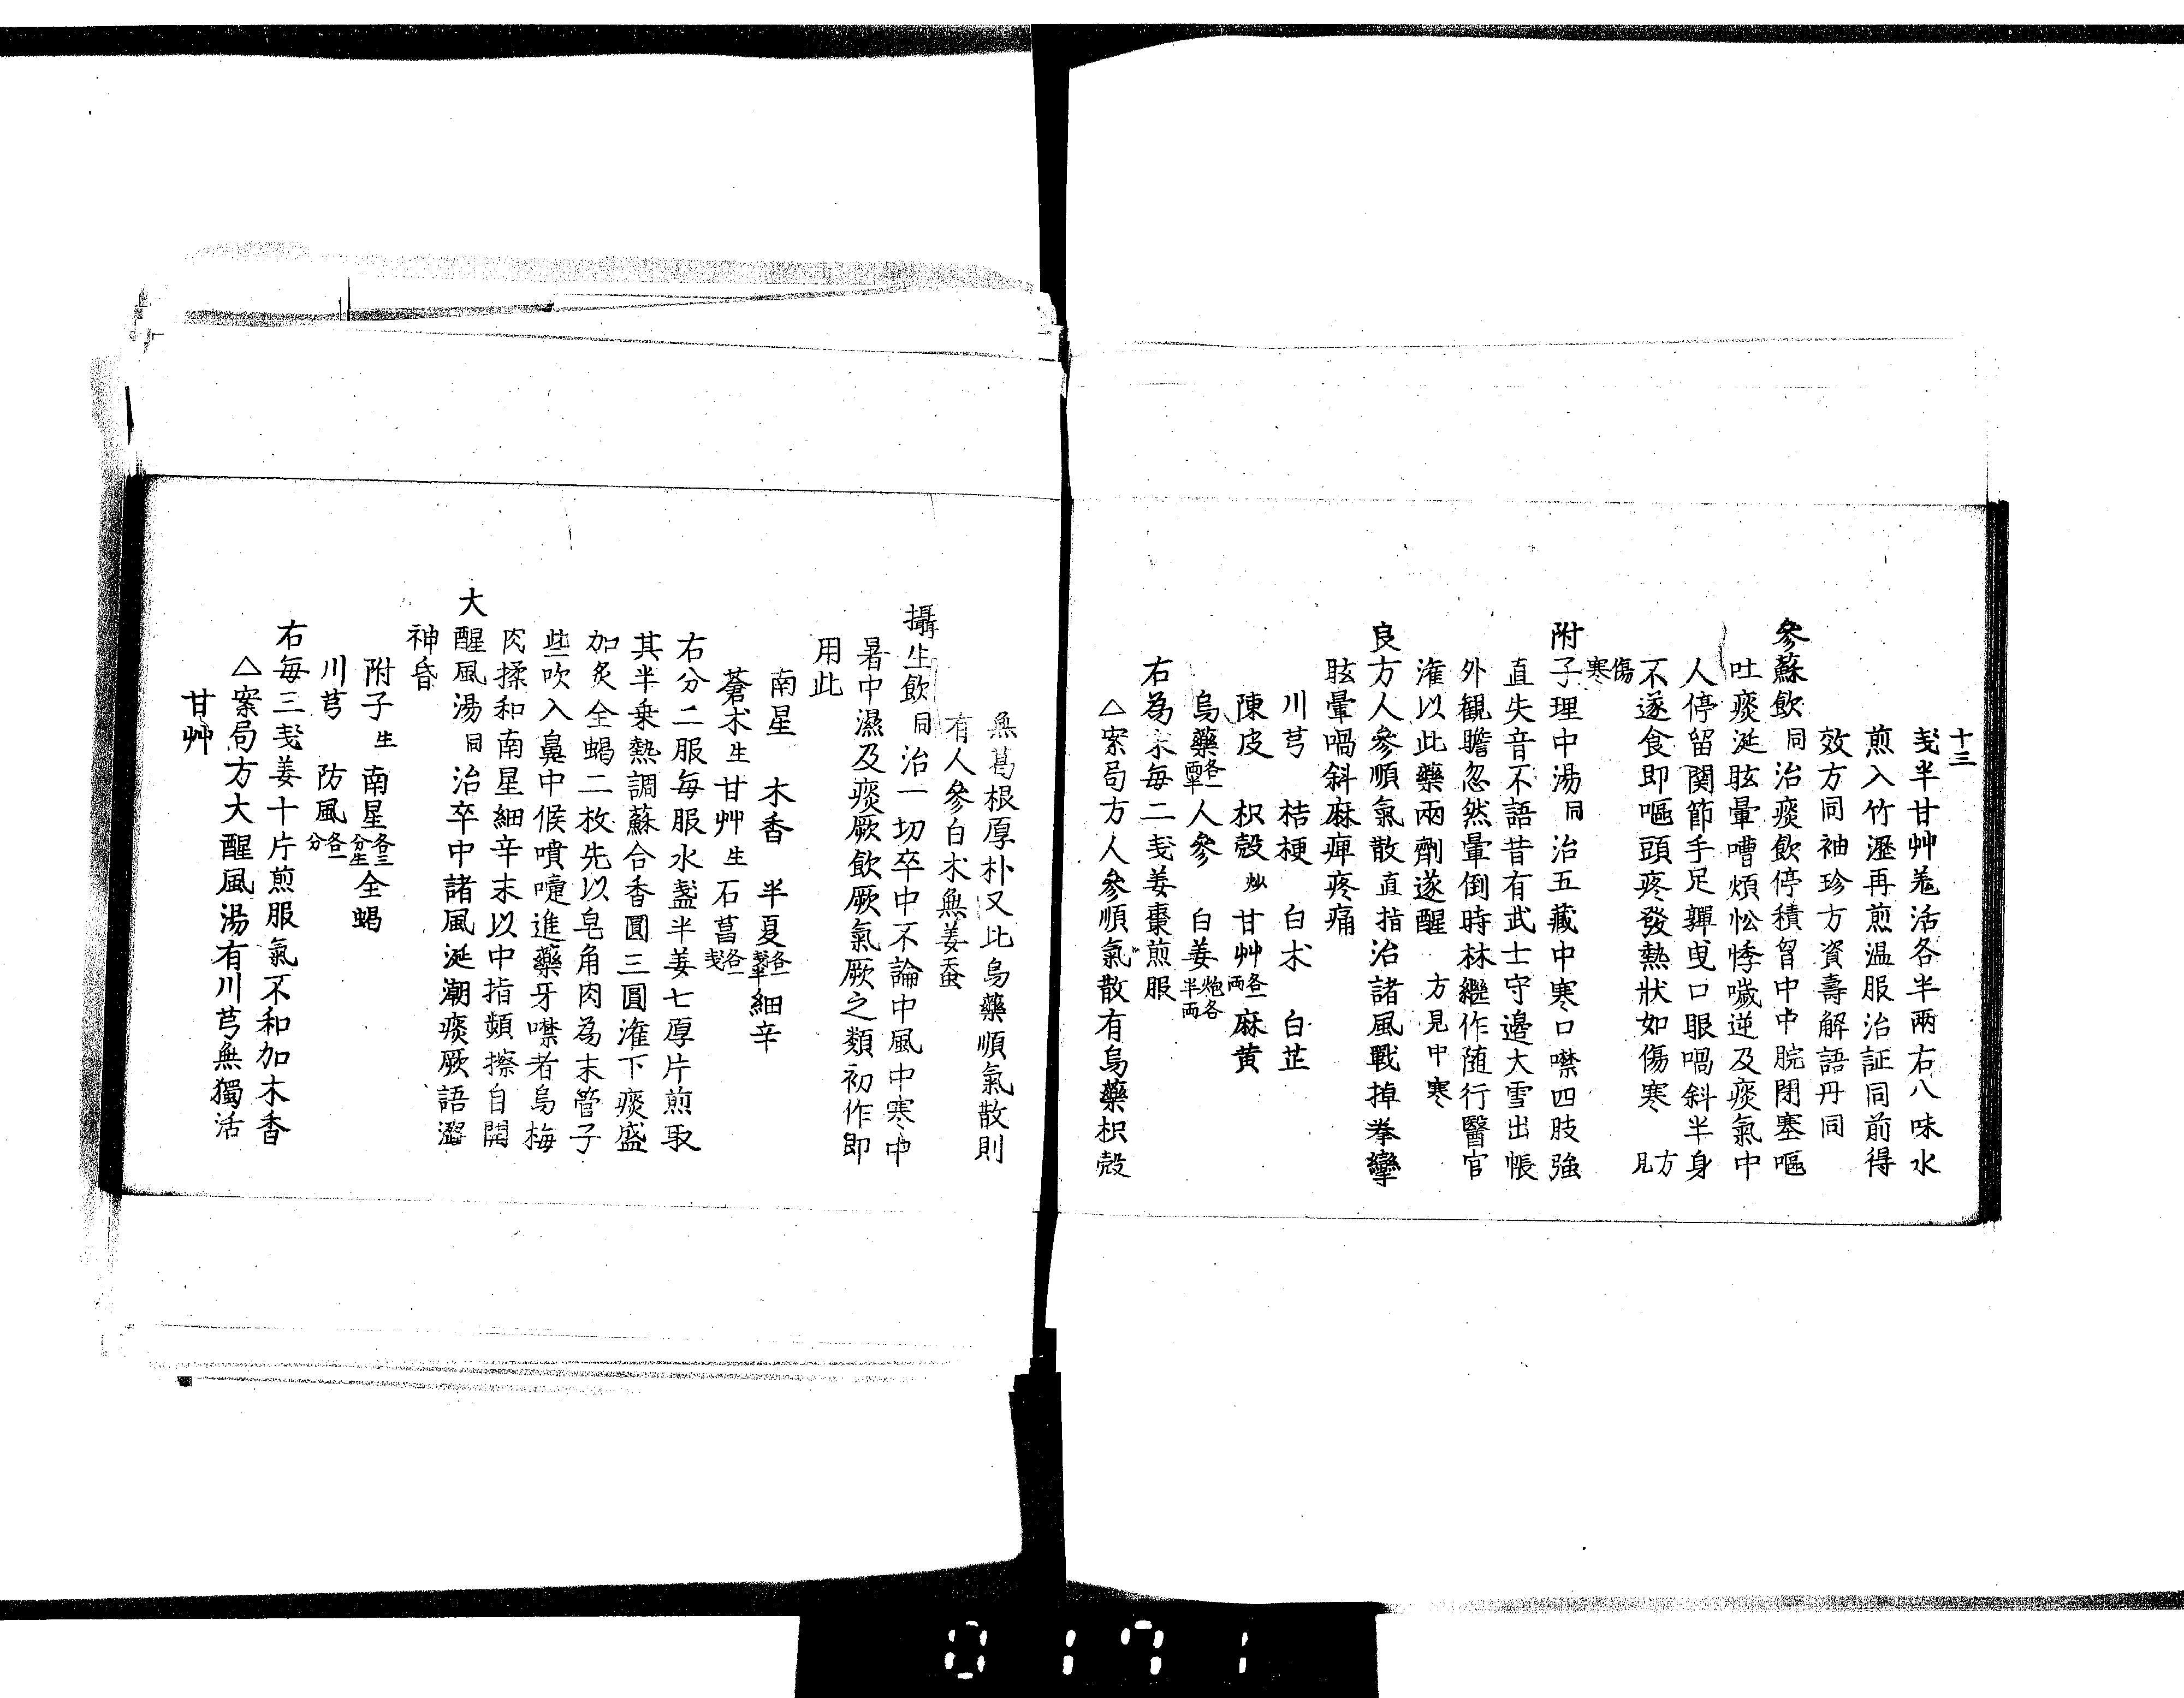 十三
戔半甘艸羗活各半兩右八味水
煎入竹瀝再煎温服治証同前得
效方同袖珍方資壽解語丹同
參蘇飲同治痰飲停積胷中中脘閉塞嘔
吐痰涎眩暈嘈煩忪悸噦逆及痰氣中
人停留関節手足嚲曳口眼喎斜半身
不遂食即嘔頭疼發熱狀如傷寒方見
傷寒
附子理中湯同治五藏中寒口噤四肢強
直失音不語昔有武士守邊大雪出帳
外観瞻忽然暈倒時林繼作随行醫官
潅以此藥兩劑遂醒方見中寒
良方人參順氣散直指治諸風戰掉拳攣
眩暈喎斜麻痺疼痛
川芎　桔梗　白朮　白芷
陳皮　枳殼炒　甘艸各一兩麻黄
烏藥各一兩半人參　白姜炮各半兩
右為末每二戔姜棗煎服
△案局方人參順氣散有烏藥枳殼
無葛根厚朴又比烏藥順氣散則
有人參白朮無姜蚕
攝生飲同治一切卒中不論中風中寒中
暑中濕及痰厥飲厥氣厥之類初作即
用此
南星　木香　半夏各一戔半細辛
蒼朮生甘艸生石菖各一戔
右分二服每服水盞半姜七厚片煎取
其半乗熱調蘇合香圓三圓潅下痰盛
加炙全蝎二枚先以皂角肉為末管子
些吹入鼻中候噴嚏進藥牙噤者烏梅
肉揉和南星細辛末以中指頻擦自開
大醒風湯同治卒中諸風涎潮痰厥語澀
神昏
附子生　南星各三分生全蝎
川芎　防風各一分
右每三戔姜十片煎服氣不和加木香
△案局方大醒風湯有川芎無獨活
甘艸
0171